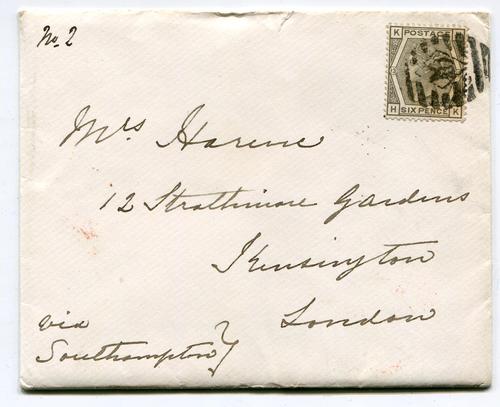 No. 2
K POSTAGE H
H SIX PENCE K
Mrs Harene
12 Strathmore Gardens
Kensington
London
via
Southampton